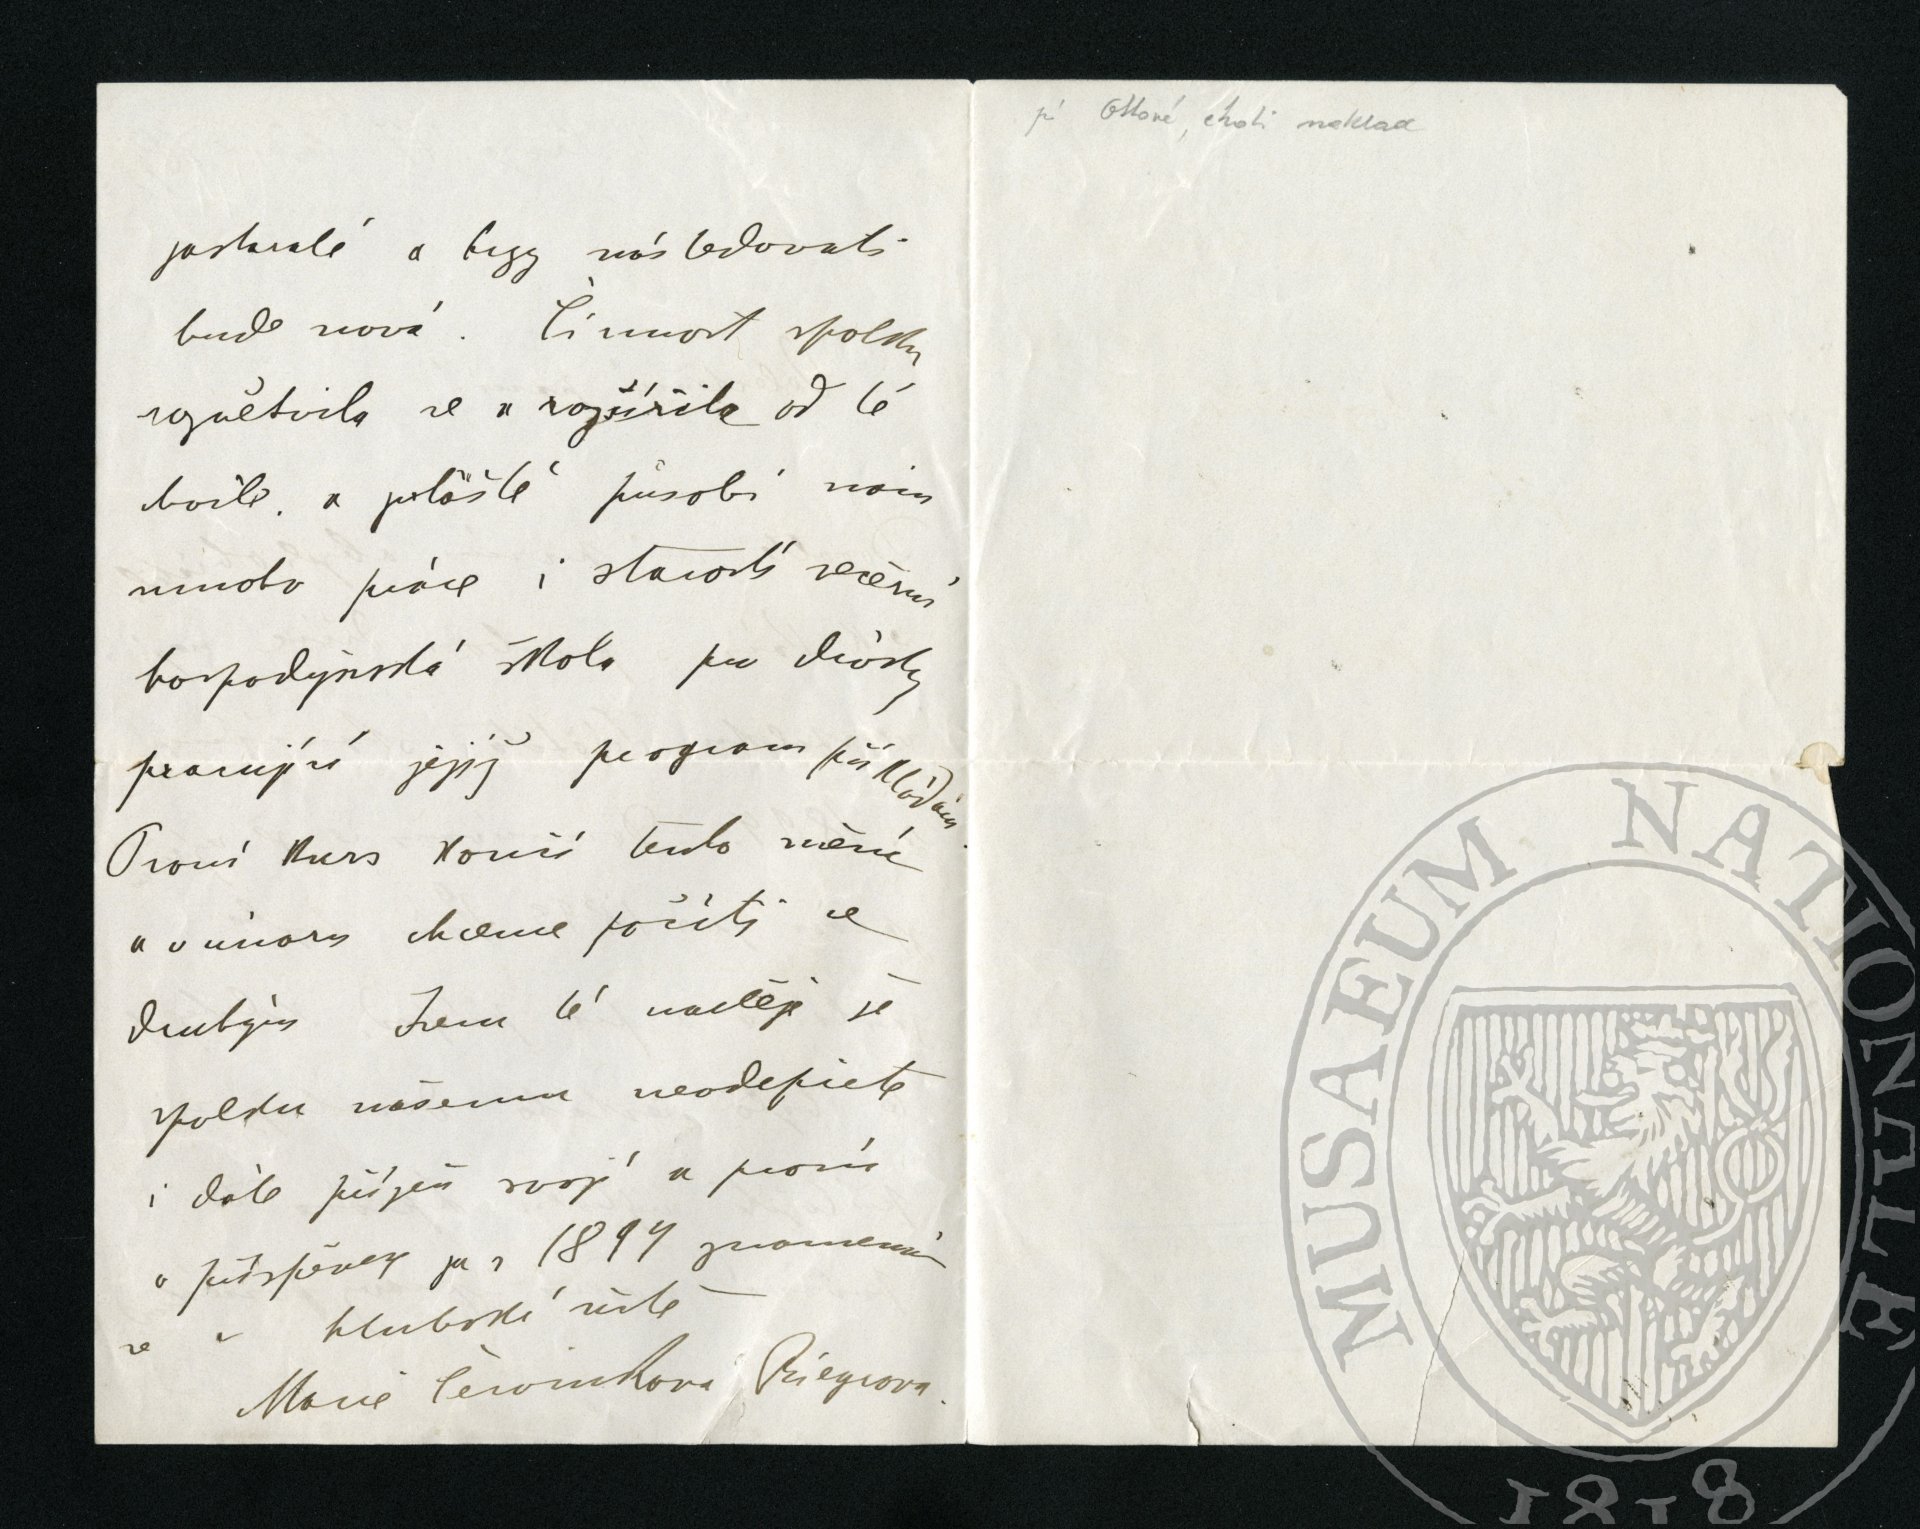 zastaralé a brzy následovati
bude nová. Činnost spolku
rozvětvila se a rozšířila od té
chvíle, a zvláště působí nám
mnoho práce i starostí večerní
hospodyňská škola pro dívky
pracující jejíž program přikládám.
První kurs končí tento měsíc
a v únoru chceme počíti s
druhým Jsem té naděje že
spolku našemu neodepřete
i dále přízeň svoji a prosíc
o příspěvek za r 1894 znamenám
se v hluboké úctě
Marie Červinková Riegrová.
pí Ottové, choti naklad
MUSAEUM NATIONALE
1818